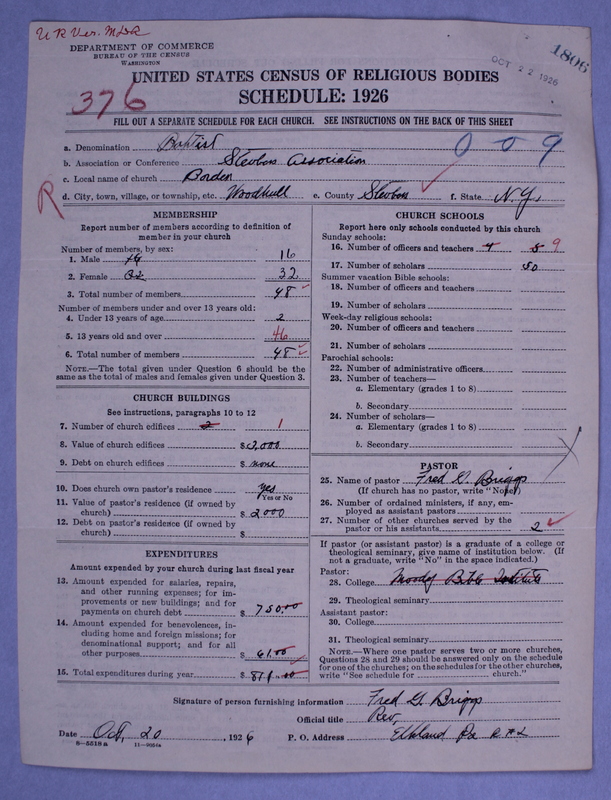 U R Ver. MDR
DEPARTMENT OF COMMERCE
BUREAU OF THE CENSUS
WASHINGTON
OCT 22 1926
1806
UNITED STATES CENSUS OF RELIGIOUS BODIES
SCHEDULE: 1926
376
FILL OUT A SEPARATE SCHEDULE FOR EACH CHURCH. SEE INSTRUCTIONS ON THE BACK OF THIS SHEET
a. Denomination Baptist
009
b. Association or Conference Steuben Association
c. Local name of church Borden
R
d. City, town, village, or township, etc. Woodhull e. County Steuben f. State N.Y.
MEMBERSHIP
Report number of members according to definition of
member in your church
Number of members, by sex:
1. Male 16
2. Female 32
3. Total number of members 48
Number of members under and over 13 years old:
4. Under 13 years of age 2
5. 13 years old and over 46
6. Total number of members 48
NOTE.—The total given under Question 6 should be the
same as the total of males and females given under Question 3.
CHURCH BUILDINGS
See instructions, paragraphs 10 to 12
7. Number of church edifices 2 1
8. Value of church edifices $ 3,000
9. Debt on church edifices $ none
10. Does church own pastor's residence yes
Yes or No
11. Value of pastor's residence (if owned by
church) $ 2000
12. Debt on pastor's residence (if owned by
church) $
EXPENDITURES
Amount expended by your church during last fiscal year
13. Amount expended for salaries, repairs,
and other running expenses; for im-
provements or new buildings; and for
payments on church debt $ 750.00
14. Amount expended for benevolences, in-
cluding home and foreign missions; for
denominational support; and for all
other purposes $ 61.00
15. Total expenditures during year $ 811.00
CHURCH SCHOOLS
Report here only schools conducted by this church
Sunday schools:
16. Number of officers and teachers 4 8 9
17. Number of scholars 50
Summer vacation Bible schools:
18. Number of officers and teachers
19. Number of scholars
Week-day religious schools:
20. Number of officers and teachers
21. Number of scholars
Parochial schools:
22. Number of administrative officers
23. Number of teachers—
a. Elementary (grades 1 to 8)
b. Secondary
24. Number of scholars—
a. Elementary (grades 1 to 8)
b. Secondary
PASTOR
25. Name of pastor Fred G. Briggs
(If church has no pastor, write "None")
26. Number of ordained ministers, if any, em-
ployed as assistant pastors
27. Number of other churches served by the
pastor or his assistants 2
If pastor (or assistant pastor) is a graduate of a college or
theological seminary, give name of institution below. (If
not a graduate, write "No" in the space indicated.)
Pastor:
28. College Moody Bible Institute
29. Theological seminary
Assistant pastor:
30. College
31. Theological seminary
NOTE.—Where one pastor serves two or more churches,
Questions 28 and 29 should be answered only on the schedule
for one of the churches; on the schedules for the other churches,
write "See schedule for church."
Signature of person furnishing information Fred G Briggs
Official title Rev.
Date Oct, 20, 1926 P. O. Address Elkland Pa R #2
8—5518a 11—9064a